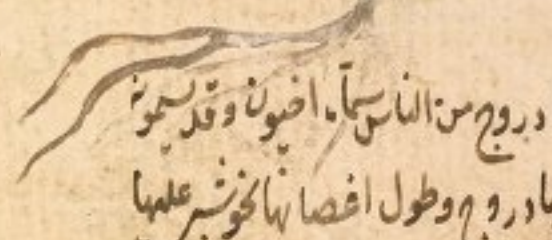 دروج من الناس سماه اخيون وقد يسمونه
ا دروج وطول اغصانها نحو شبر عليها